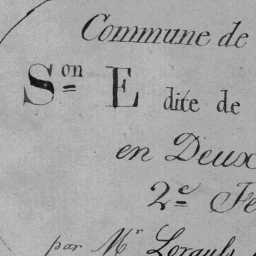 Commune de
Son E dite de
en Deux
2e Fe
par Mr